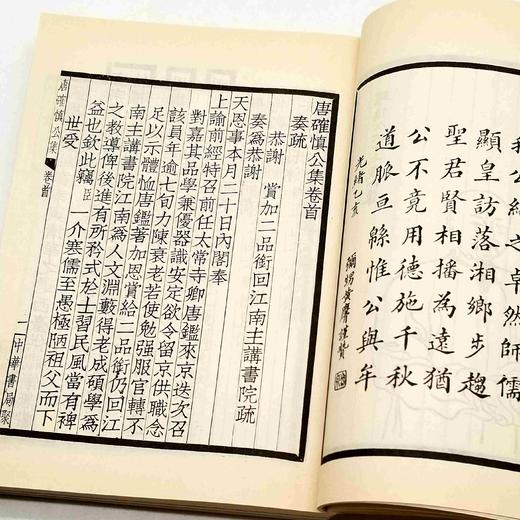 公紹之卓然師儒
顯皇訪落湘鄉步趨
聖君賢相播為遠猶
公不竟用德施千秋
道脈亘緜惟公與牟
光緒乙亥
彌甥黃膺謹贊
唐確慎公集卷首
奏疏
恭謝 賞加二品銜回江南主講書院疏
奏為恭謝
天恩事本月二十日內閣奉
上諭前經特召前任太常寺卿唐鑑來京迭次召
對嘉其品學兼優器識安定欲令留京供職念
該員年逾七旬力陳衰老若使勉强服官轉不
足以示體恤唐鑑著加恩賞給二品銜仍回江
南主講書院江南為人文淵藪得老成碩學為
之教導俾後進有所矜式於士習民風當有裨
益也欽此竊臣一介寒儒至愚極陋祖父而下
世愛
唐確慎公集 卷首 一 中華書局聚